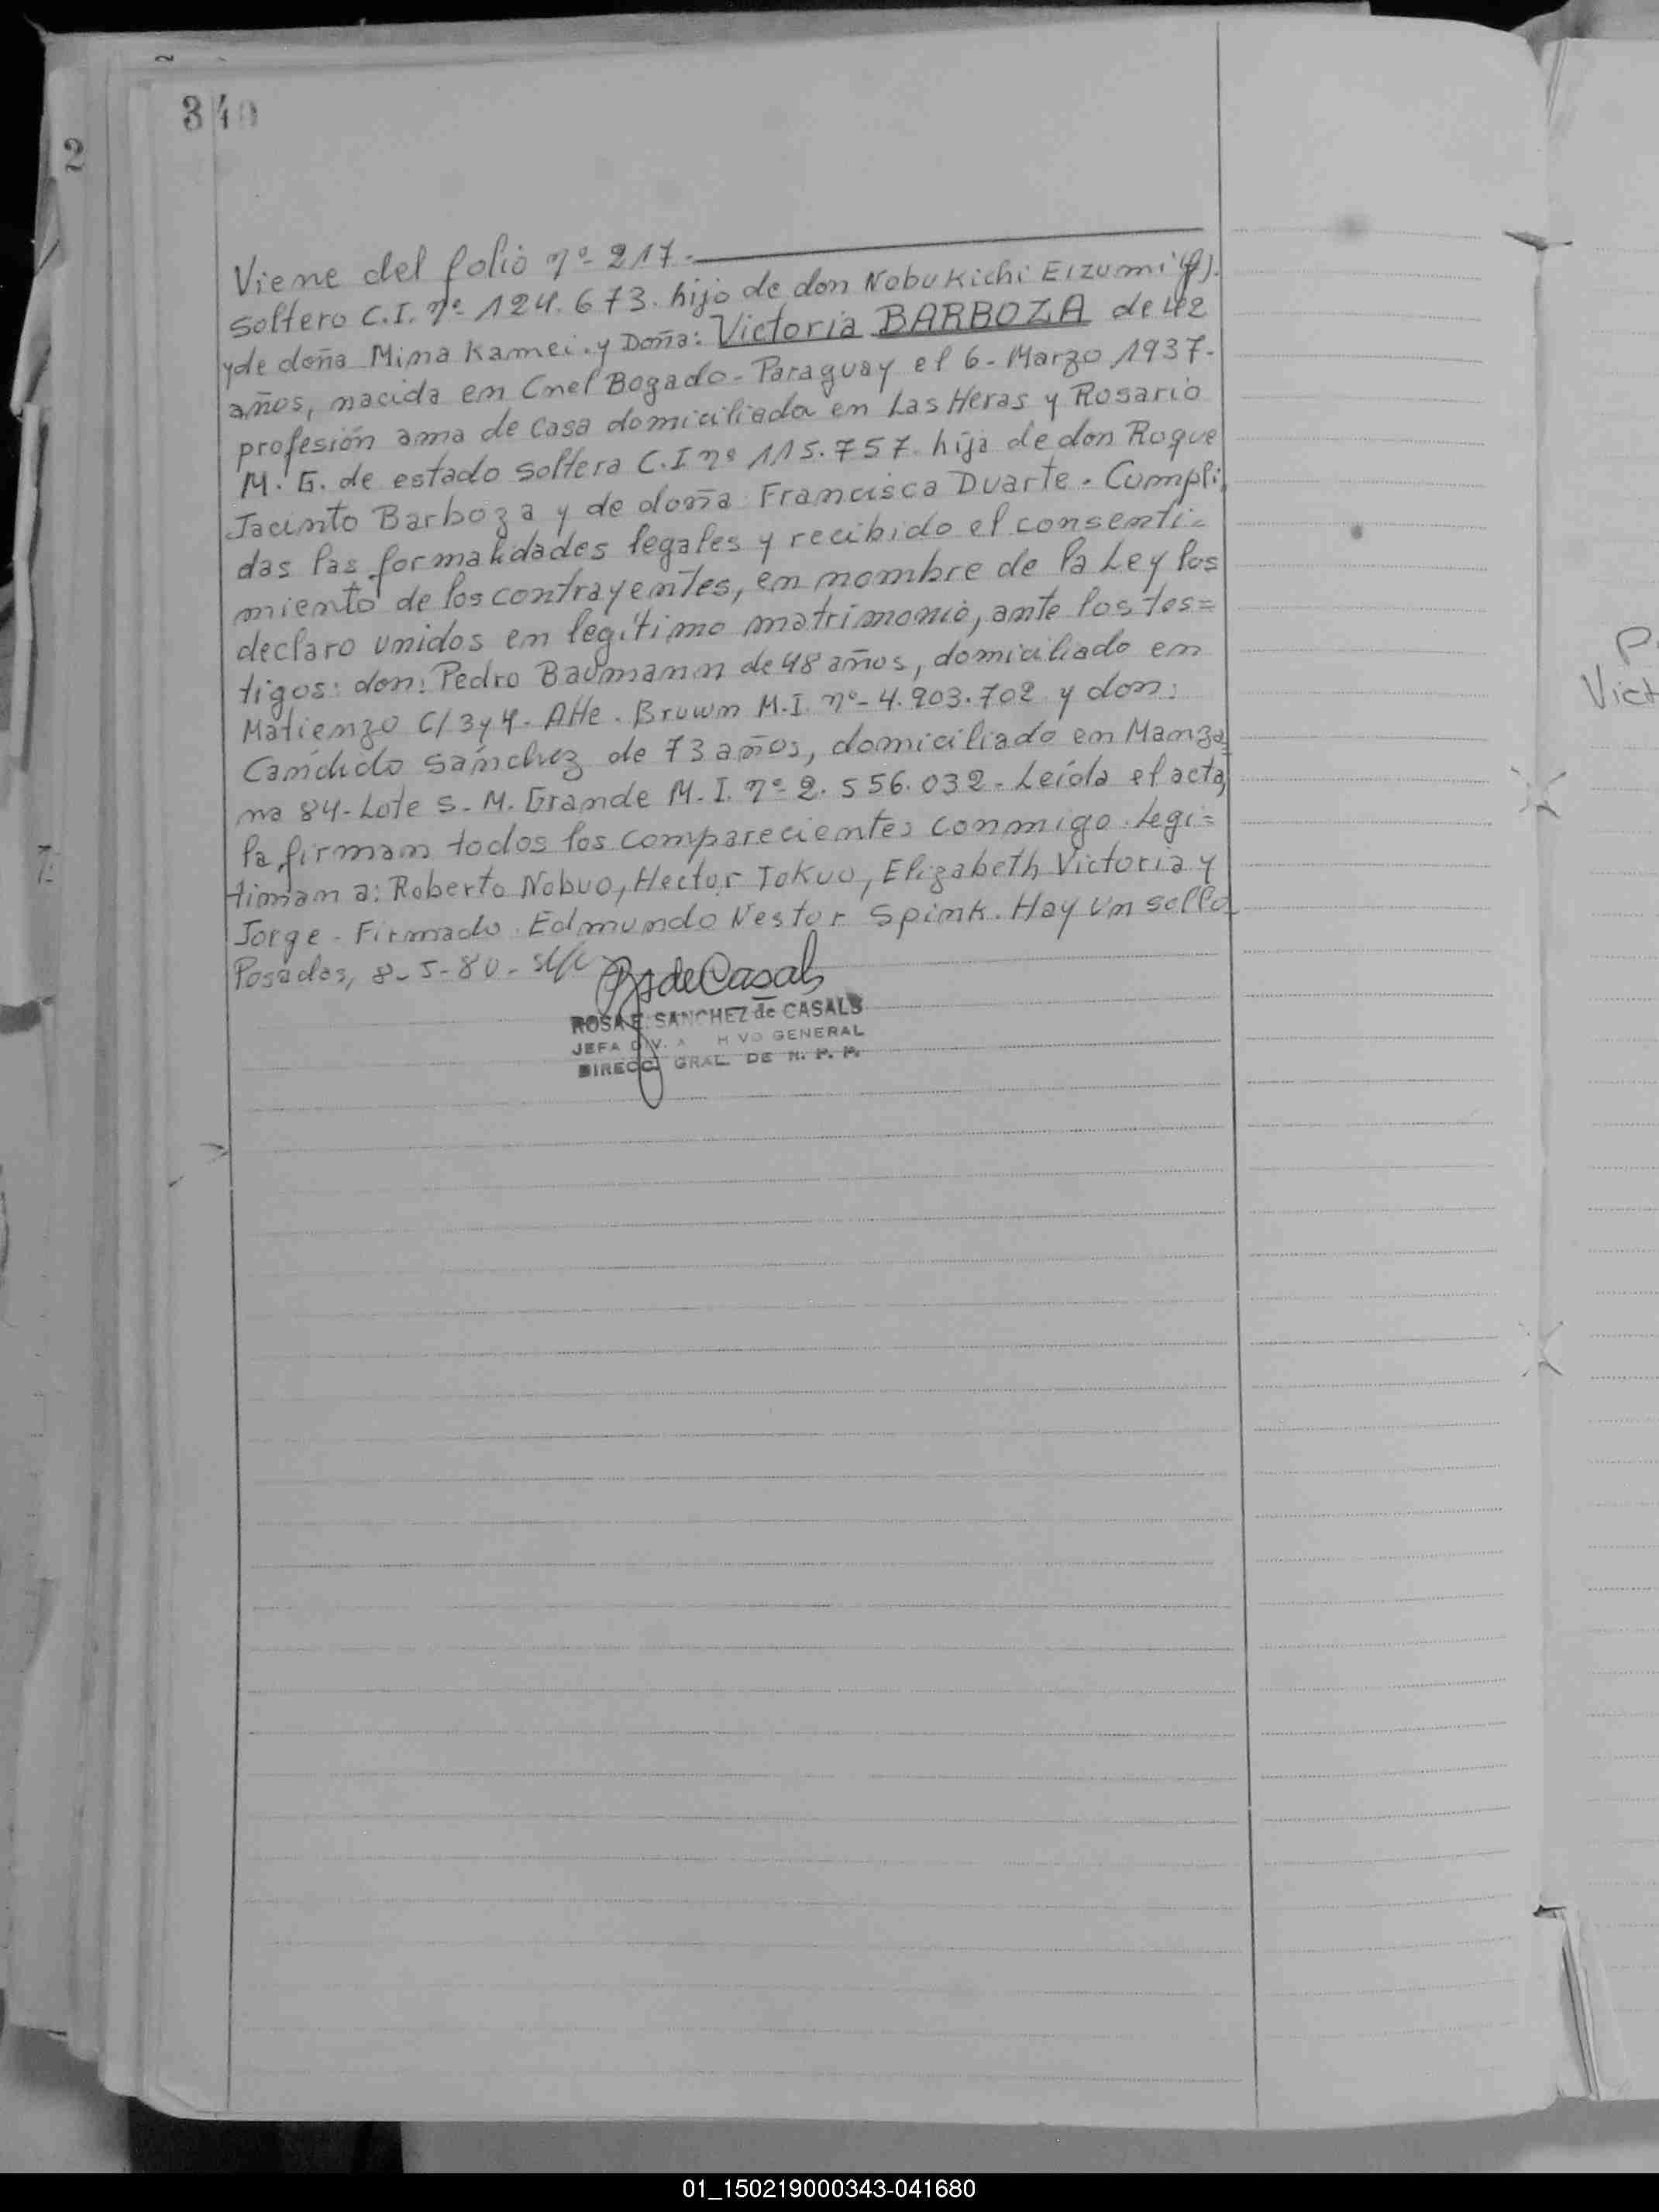 340
2
Viene del folio nº 217.
soltero C.I. nº 124.673. hijo de don Nobukichi Eizumi (f).
y de doña Mina Kamei. y Doña: Victoria BARBOZA de 42
años, nacida en Cnel Bogado - Paraguay el 6 - Marzo 1937.
profesión ama de casa domiciliada en Las Heras y Rosario
M. G. de estado soltera C.I nº 115.757. hija de don Roque
Jacinto Barboza y de doña Francisca Duarte. Cumpli
das las formalidades legales y recibido el consenti=
miento de los contrayentes, en nombre de la Ley los
declaro unidos en legítimo matrimonio, ante los tes=
tigos: don: Pedro Baumann de 48 años, domiciliado en
Matienzo C/ 3 y 4 - Alte. Bruwn M.I. nº - 4.903.702 y don:
Cándido Sánchez de 73 años, domiciliado en Manza=
na 84 - Lote 5 - M. Grande M.I. nº - 2.556.032 - Leída el acta,
la firman todos los comparecientes conmigo. Legi=
timan a: Roberto Nobuo, Hector Tokuo, Elizabeth Victoria y
Jorge - Firmado. Edmundo Nestor Spink. Hay un sello
Posadas, 8-5-80 -
RSdeCasals
ROSA E. SANCHEZ de CASALS
JEFA DIV. A HIVO GENERAL
DIRECC. GRAL. DE R. P. P.
Vict
01_150219000343-041680